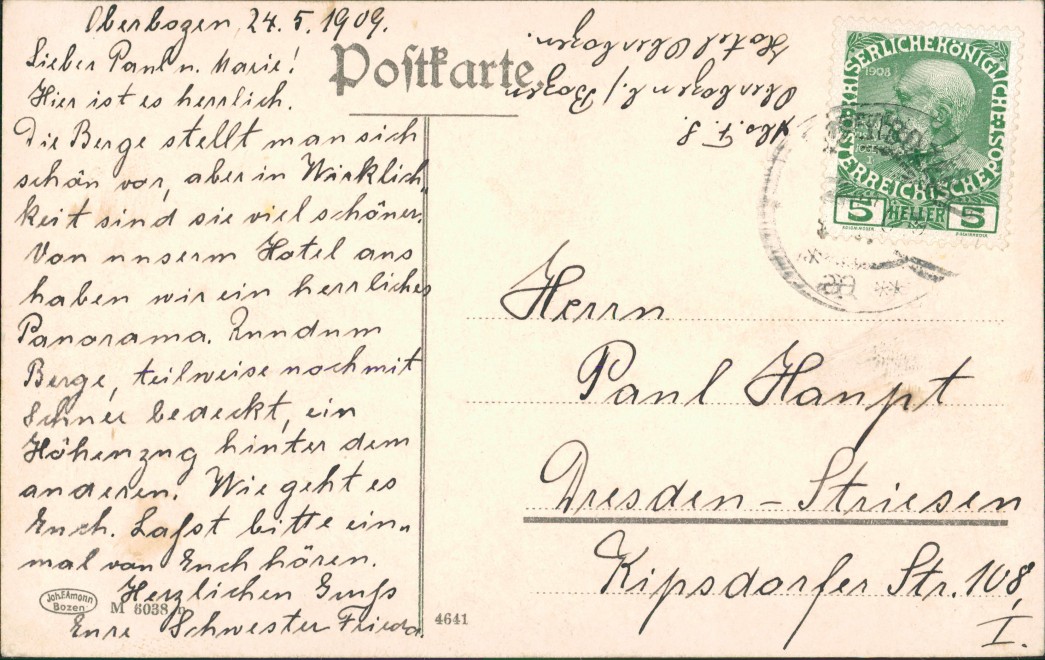 Oberbozen, 24. 5. 1909.
Lieber Paul u. Marie!
Hier ist es herrlich.
Die Berge stellt man sich
schön vor, aber in Wirklich„
keit sind sie viel schöner.
Von unserm Hotel aus
haben wir ein herrliches
Panorama. Rundum
Berge, teilweise noch mit
Schnee bedeckt, ein
Höhenzug hinter dem
anderen. Wie geht es
Euch. Laßt bitte ein„
mal von Euch hören.
Herzlichen Gruß
Eure Schwester Frieda
Postkarte.
Oberbozen b/ Bozen
Hotel Oberbozen.
KAISERLICHE KÖNIGLICHE
ÖSTERREICHISCHE POST
1908
5 HELLER 5
Herrn
Paul Haupt
Dresden-Striesen
Kipsdorfer Str. 108,
I.
Joh. F. Amonn
Bozen
M 6038
4641